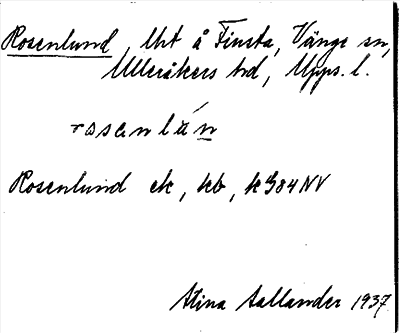 Rosenlund, lht å Finsta, Vänge sn,
Ulleråkers hd, Upps. l.
rosenlán
Rosenlund ek, kb, k G84NV
Stina Sallander 1937